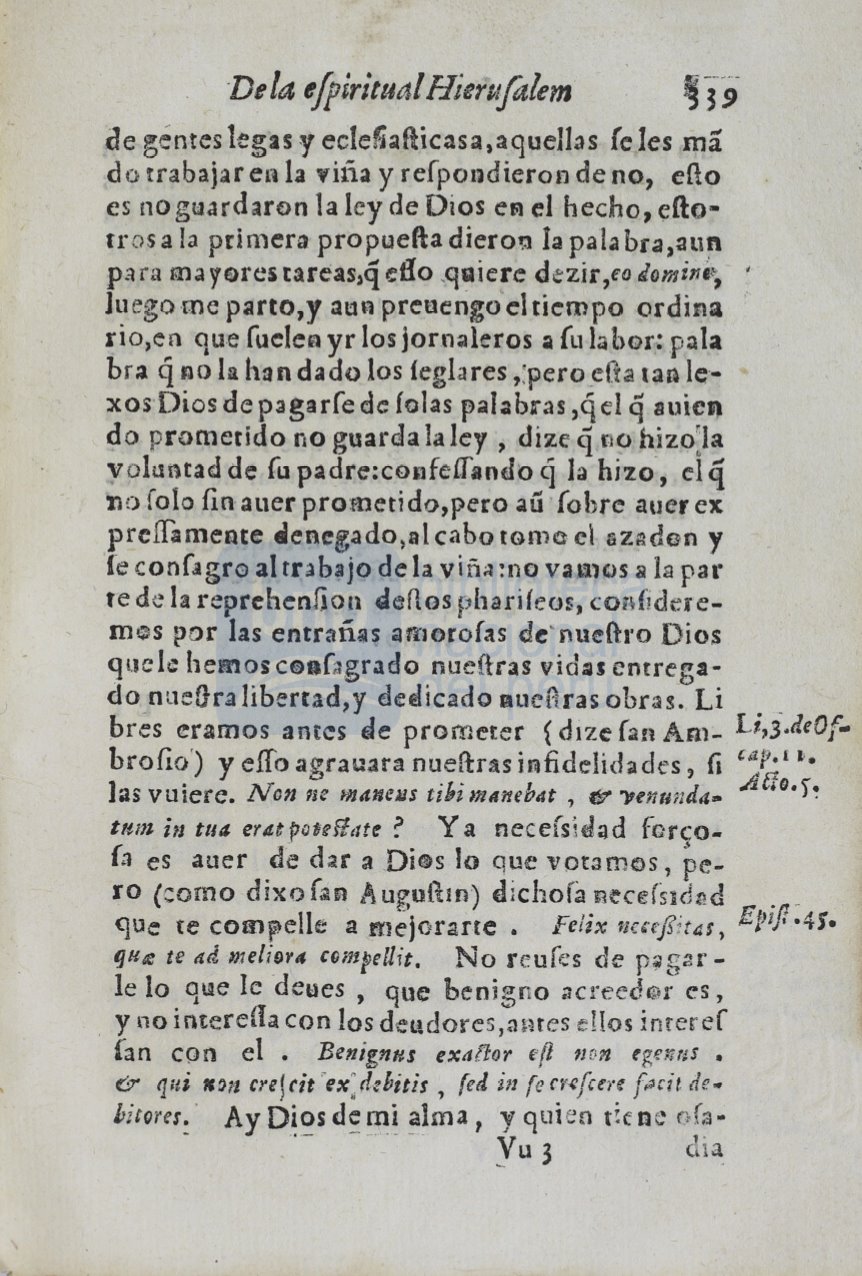 De la eſpiritual Hieruſalem 339
de gentes legas y ecleſiaſticasa, aquellas ſe les mã
do trabajar en la viña y reſpondieron de no, eſto
es no guardaron la ley de Dios en el hecho, eſto-
tros a la primera propueſta dieron la palabra, aun
para mayores tareas, q̃ eſſo quiere dezir, eo domine,
luego me parto, y aun preuengo el tiempo ordina
rio, en que ſuelen yr los jornaleros a ſu labor: pala
bra q̃ no la han dado los ſeglares, pero eſta tan le-
xos Dios de pagarſe de ſolas palabras, q̃ el q̃ auien
do prometido no guarda la ley, dize q̃ no hizo la
voluntad de ſu padre: confeſſando q̃ la hizo, el q̃
no ſolo ſin auer prometido, pero aũ ſobre auer ex
preſſamente denegado, al cabo tomo el azadon y
ſe conſagro al trabajo de la viña: no vamos a la par
te de la reprehenſion deſtos phariſeos, conſidere-
mos por las entrañas amoroſas de nueſtro Dios
que le hemos conſagrado nueſtras vidas entrega-
do nueſtra libertad, y dedicado nueſtras obras. Li
bres eramos antes de prometer (dize ſan Am-
broſio) y eſſo agrauara nueſtras infidelidades, ſi
las vuiere. Non ne maneus tibi manebat, & venunda-
tum in tua erat poteſtate? Ya neceſsidad forço-
ſa es auer de dar a Dios lo que votamos, pe-
ro (como dixo ſan Auguſtin) dichoſa neceſsidad
que te compelle a mejorarte. Felix neceſsitas,
quæ te ad meliora compellit. No reuſes de pagar-
le lo que le deues, que benigno acreedor es,
y no intereſſa con los deudores, antes ellos intereſ
ſan con el. Benignus exactor eſt non egenus.
& qui non creſcit ex debitis, ſed in ſe creſcere facit de-
bitores. Ay Dios de mi alma, y quien tiene oſa-
Vu 3 dia
Li, 3. de Of-
cap. 11.
Acto. 5.
Epiſt. 45.